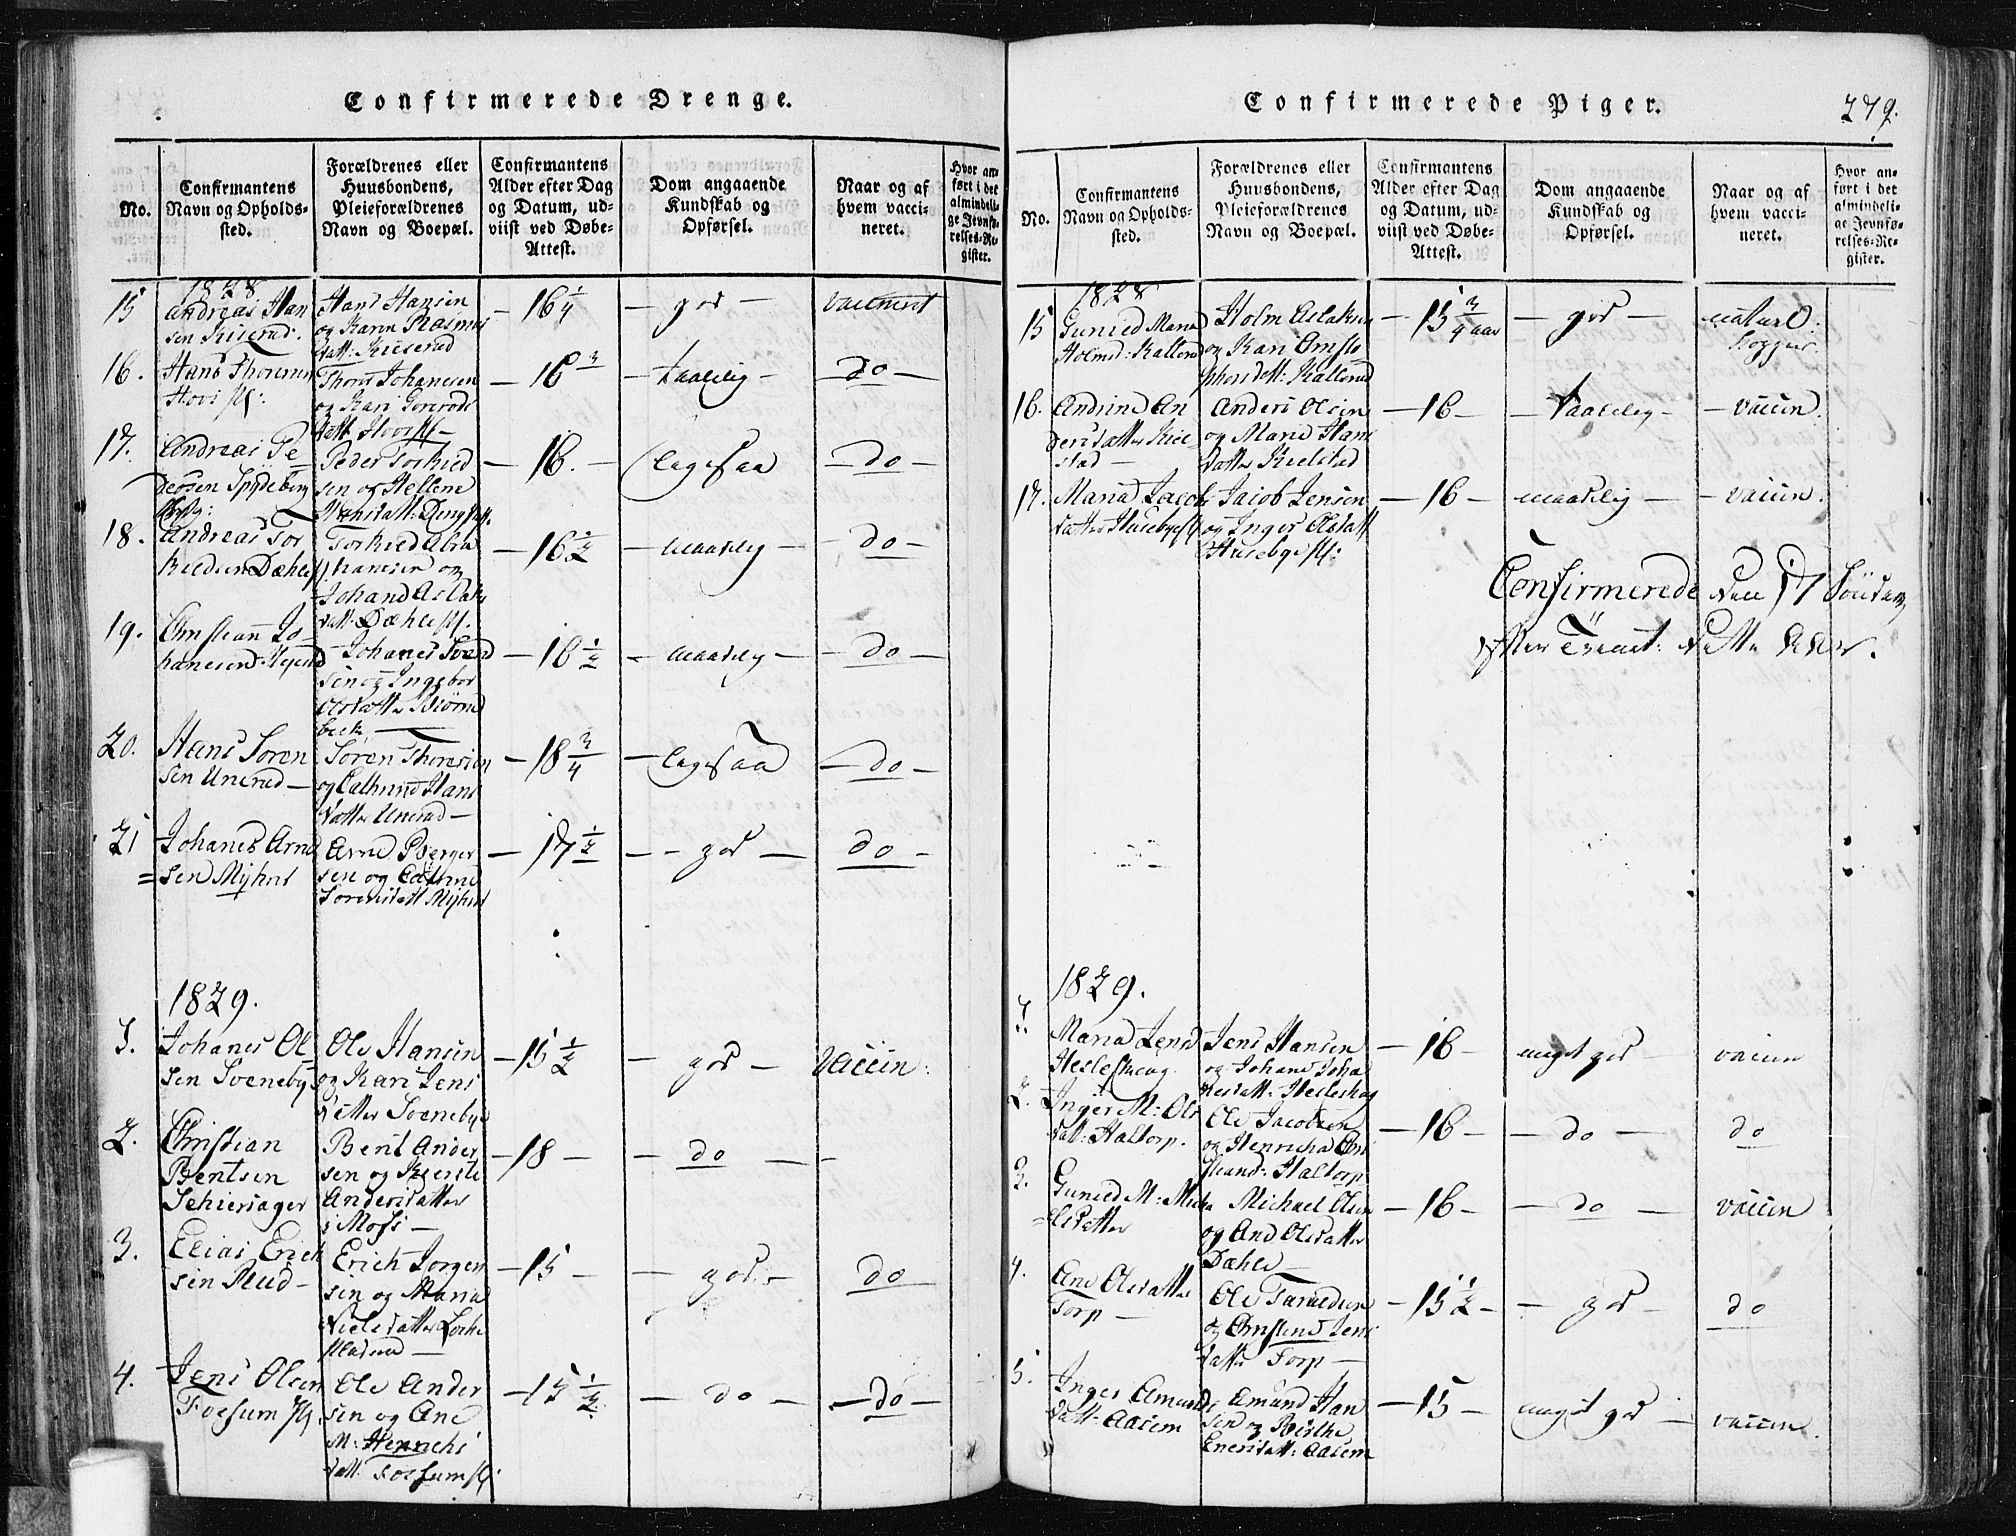 Confirmerede Drenge.
No.
Confirmantens
Navn og Opholds-
sted.
Forældrenes eller
Huusbondens,
Pleieforældrenes
Navn og Boepæl.
Confirmantens
Alder efter Dag
og Datum, ud-
viist ved Døbe-
Attest.
Dom angaaende
Kundskab og
Opførsel.
Naar og af
hvem vacci-
neret.
Hvor an-
ført i det
almindeli-
ge Jevnfø-
relses-Re-
gister.
1828
15 Andreas Han
sen
Hans Hansen
og Karen Rasmus
datt:
— 16 1/4
— god —
vaccineret
16. Hans Thoresen
Hovi
Thore Johanesen
og Kari
datt
— 16 3
— taalelig —
— do —
17. Andreas Pe
dersen Spydeberg
Peder Torkild
sen og Hellene
Hansdatt:
— 16. —
— do —
18. Andreas Tor
kildsen Dæhle
Torkild Abra
hamsen og
Johane Aslaks
datt: Dæhle
— 16 1/2
— maadelig —
— do —
19. Christian Jo
hanesen
Johanes
sen og Ingebor
Olsdatter Biørne
bech —
— 16 1/2
— maadelig —
— do —
20. Hans Soren
sen Unerud —
Søren Thoresen
og Cathrine Hans
datter Unerud —
— 18 3/4
— do —
21 Johanes Arne
sen Myhre
Arne Berger
sen og Cathrine
Sorensdatt Myhre
— 17 1/2
— god —
do —
1829.
1. Johanes Ol
sen Sveneby
Ole Hansen
og Kari Jens
datter Sveneby
— 15 1/2
— god —
Vaccin:
2. Christian
Bentsen
Schieriager
Bent Ander
sen og Kierste
Andersdatter
i Moss —
— 18 —
— do —
3. Elias Erich
sen Rud —
Erich Jorgen
sen og Maria
Nielsdatter
— 15 —
— god —
do
4. Jens Olsen
Fossum
Ole Ander
sen og Ane
M: Henrichs
datt: Fossum
— 15 1/2
— do —
— do —
Confirmerede Piger.
279.
No.
Confirmantens
Navn og Opholds-
sted.
Forældrenes eller
Huusbondens,
Pleieforældrenes
Navn og Boepæl.
Confirmantens
Alder efter Dag
og Datum, ud-
viist ved Døbe-
Attest.
Dom angaaende
Kundskab og
Opførsel.
Naar og af
hvem vacci-
neret.
Hvor an-
ført i det
almindeli-
ge Jevnfø-
relses-Re-
gister.
1828
15 Gunild Maria
Holmsd: Kallerud
Holm Aslaksen
og Kari Christo
phersdatt: Kallerud
— 15 3/4 aar
— god —
naturl.
Kopper.
16. Andrine An
dersdatter Kiel
stad —
Anders Olsen
og Marie Hans
datter Kielstad
— 16 —
— taalelig —
— vaccin.
17. Maria Jacobs
datter Huseby
Jacob Jensen
og Inger Olsdatt
Husebye
— 16 —
maadelig —
— vaccin.
Confirmerede den 17 Søndag
efter Trinit: dette Aar.
1829.
1. Maria Jensd
Hesleskoug
Jens Hansen
og Johane Joha
nesdatt: Hesleskog
— 16 —
meget god —
vaccin
2. Inger M: Ols
datt: Haltorp.
Ole Jacobsen
og Henricha Chri
stians: Haltorp
— 16 —
— do —
do
3. Gunild M: Micha
elsdatter
Michael Olsen
og Ane Olsdatter
Dæhle —
— 16 —
— do —
vaccin
4. Ane Olsdatter
Torp —
Ole Taraldsen
og Christine Jens
datter Torp —
— 15 1/2 —
— god —
do
5. Inger Amunds
datt: Aasem
Amund Han
sen og Birthe
Enersdatt: Aasem
— 15 —
meget god —
vaccin.